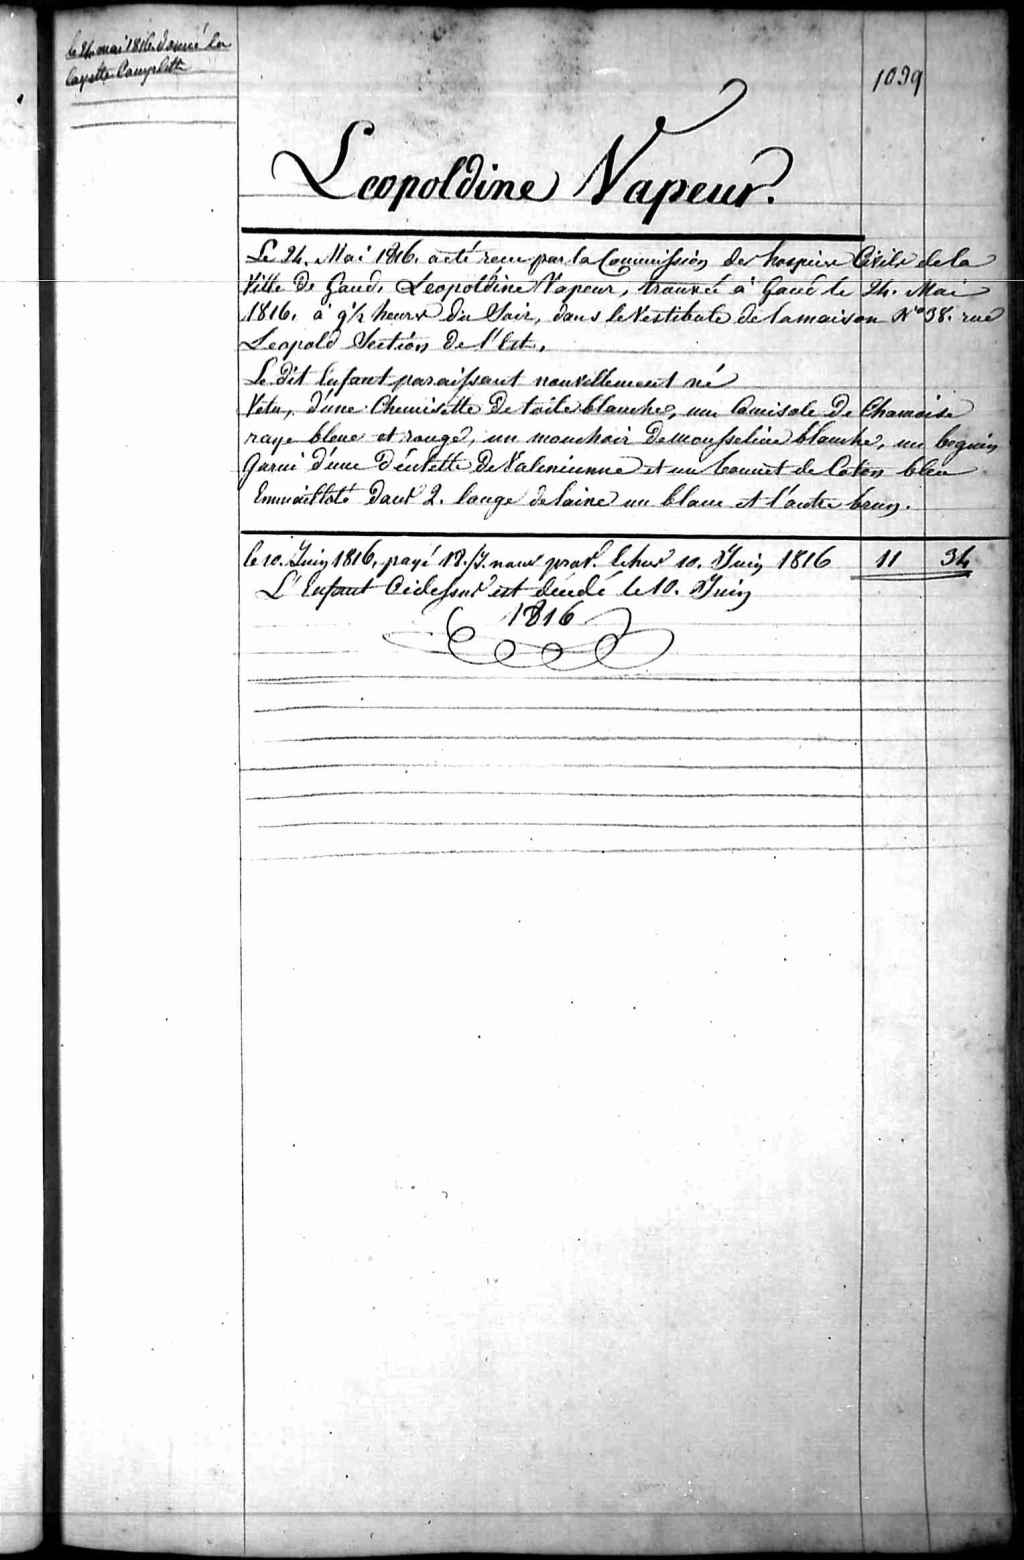 le 24 mai 1816 donné la
layette Complette
1039
Leopoldine Vapeur.
Le 24. Mai 1816. a été recu par la Commission des hospices Civils de la
Ville de Gand, Leopoldine Vapeur, trouvée à Gand le 24. Mai
1816. à 9½ heures du Soir, dans le Vestibule de la maison N° 38. rue
Leopold Section de l'Est,
Le dit Enfant paraissant nouvellement né
Vetu, d'une Chemisette de toile blanche, une Camisole de Chamoise
raye bleue et rouge, un mouchoir de mousseline blanche, un beguin
Garni d'une Dentelle de Valencienne et un bonnet de Coton bleu
Emmaillotté dans 2. lange de laine un blanc et l'autre brun.
le 10. Juin 1816, payé 18. nour 10. Juin 1816 11 34
L'Enfant Cidessus est décédé le 10. Juin
1816